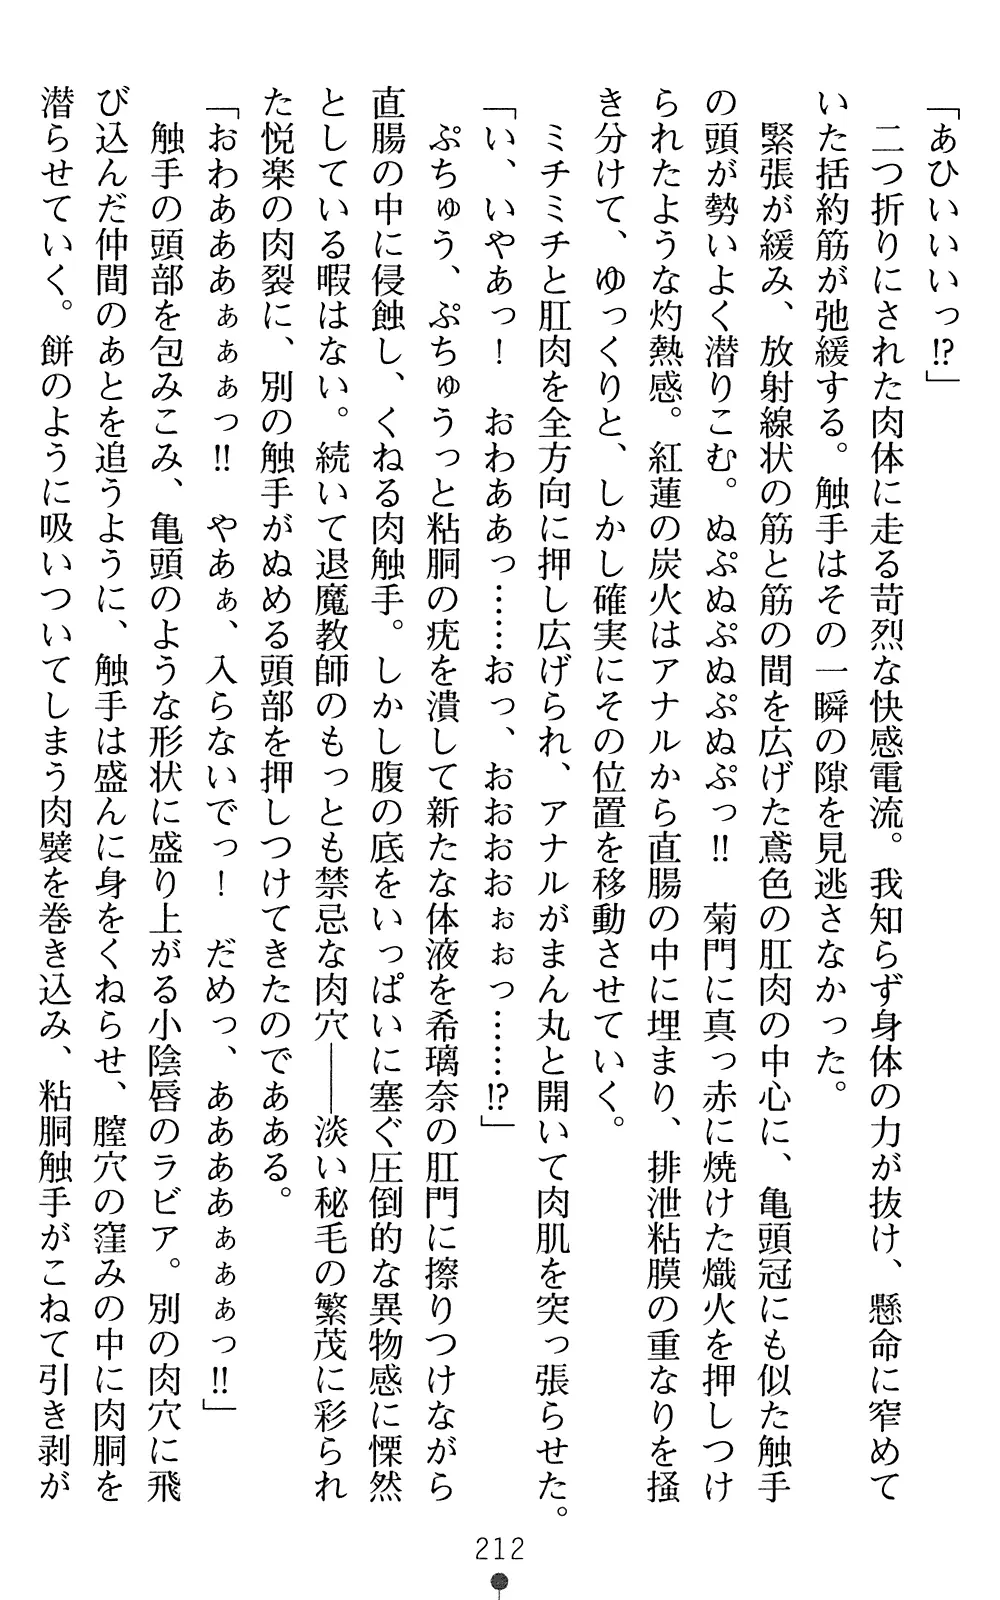 「あひいいいっ⁉」
　二つ折りにされた肉体に走る苛烈な快感電流。我知らず身体の力が抜け、懸命に窄めて
いた括約筋が弛緩する。触手はその一瞬の隙を見逃さなかった。
　緊張が緩み、放射線状の筋と筋の間を広げた鳶色の肛肉の中心に、亀頭冠にも似た触手
の頭が勢いよく潜りこむ。ぬぷぬぷぬぷぬぷっ‼　菊門に真っ赤に焼けた熾火を押しつけ
られたような灼熱感。紅蓮の炭火はアナルから直腸の中に埋まり、排泄粘膜の重なりを掻
き分けて、ゆっくりと、しかし確実にその位置を移動させていく。
　ミチミチと肛肉を全方向に押し広げられ、アナルがまん丸と開いて肉肌を突っ張らせた。
「い、いやあっ！　おわああっ……おっ、おおおおぉぉっ……⁉」
　ぷちゅう、ぷちゅうっと粘胴の疣を潰して新たな体液を希璃奈の肛門に擦りつけながら
直腸の中に侵蝕し、くねる肉触手。しかし腹の底をいっぱいに塞ぐ圧倒的な異物感に慄然
としている暇はない。続いて退魔教師のもっとも禁忌な肉穴――淡い秘毛の繁茂に彩られ
た悦楽の肉裂に、別の触手がぬめる頭部を押しつけてきたのである。
「おわあああぁぁぁっ‼　やあぁ、入らないでっ！　だめっ、ああああぁぁぁっ‼」
　触手の頭部を包みこみ、亀頭のような形状に盛り上がる小陰唇のラビア。別の肉穴に飛
び込んだ仲間のあとを追うように、触手は盛んに身をくねらせ、膣穴の窪みの中に肉胴を
潜らせていく。餅のように吸いついてしまう肉襞を巻き込み、粘胴触手がこねて引き剥が
212